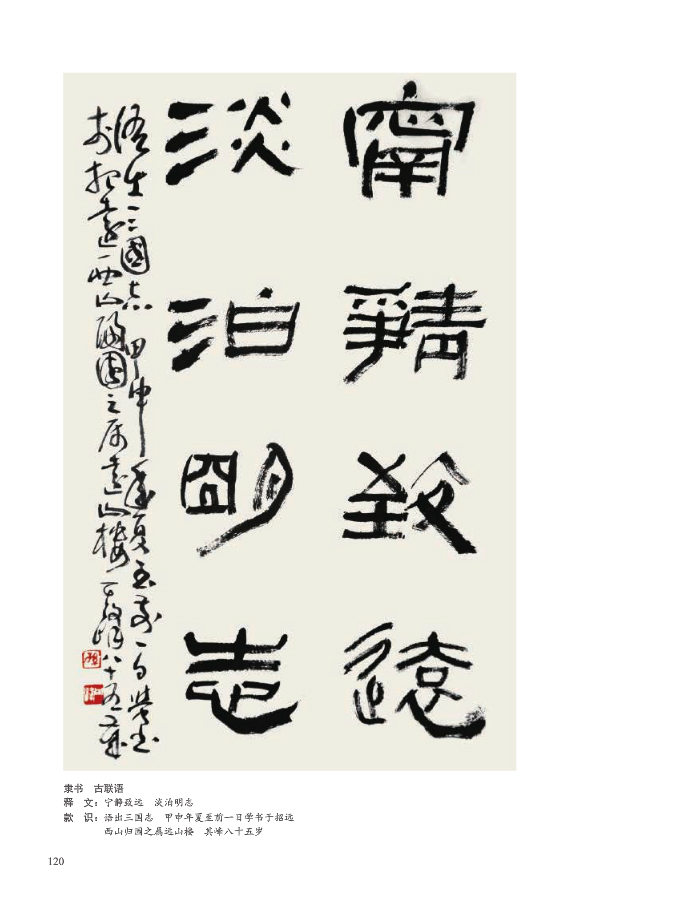 甯靜致遠
淡泊明志
語出三國志 甲申年夏至前一日學書
於招遠西山歸園之属遠山樓 其峰八十五歲
隶书 古联语
释 文：宁静致远 淡泊明志
款 识：语出三国志 甲申年夏至前一日学书于招远
西山归园之属远山楼 其峰八十五岁
120